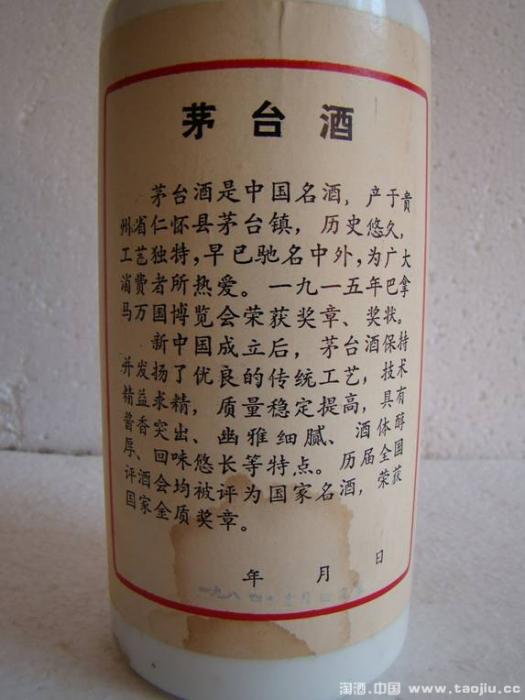 茅台酒
茅台酒是中国名酒，产于贵
州省仁怀县茅台镇，历史悠久，
工艺独特，早已驰名中外，为广大
消费者所热爱。一九一五年巴拿
马万国博览会荣获奖章、奖状。
新中国成立后，茅台酒保持
并发扬了优良的传统工艺，技术
精益求精，质量稳定提高，具有
酱香突出、幽雅细腻、酒体醇
厚、回味悠长等特点。历届全国
评酒会均被评为国家名酒，荣获
国家金质奖章。
年 月 日
一九八四
淘酒.中国 www.taojiu.com